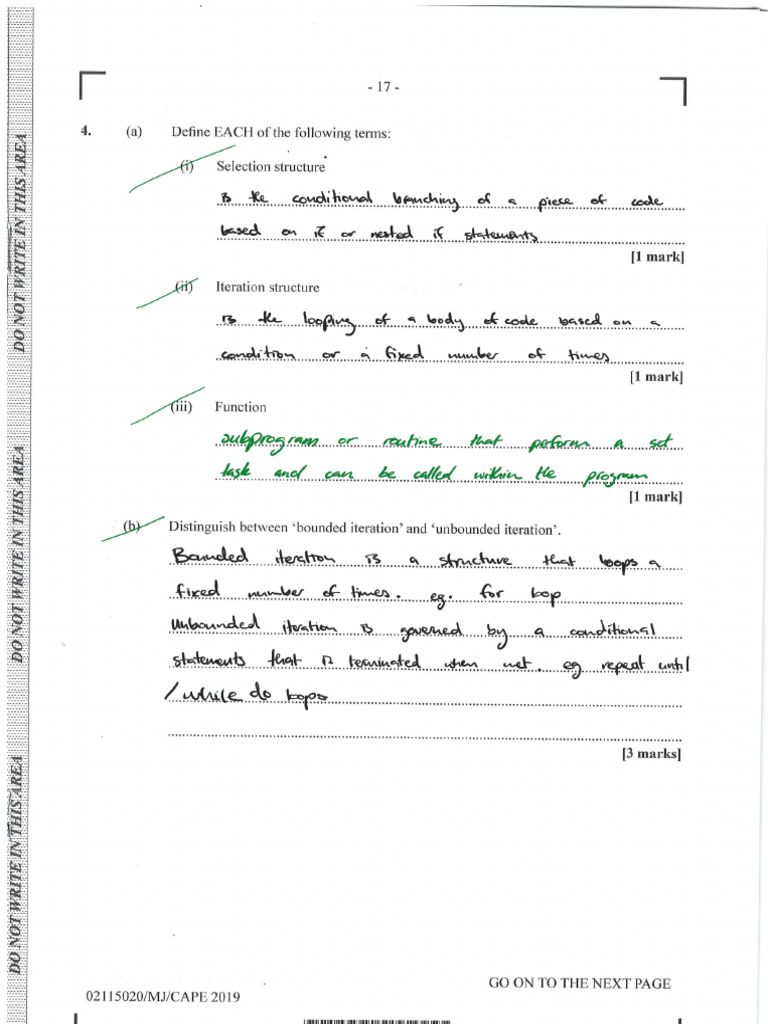 - 17 -
4. (a) Define EACH of the following terms:
(i) Selection structure
is the conditional branching of a piece of code
based on if or nested if statements
[1 mark]
(ii) Iteration structure
is the looping of a body of code based on a
condition or a fixed number of times
[1 mark]
(iii) Function
subprogram or routine that peform a set
task and can be called within the program
[1 mark]
(b) Distinguish between ‘bounded iteration’ and ‘unbounded iteration’.
Bounded iteration is a structure that loops a
fixed number of times. eg. for loop
Unbounded iteration is governed by a conditional
statements that is terminated when met. eg repeat until
/while do loops
[3 marks]
GO ON TO THE NEXT PAGE
02115020/MJ/CAPE 2019
DO NOT WRITE IN THIS AREA
DO NOT WRITE IN THIS AREA
DO NOT WRITE IN THIS AREA